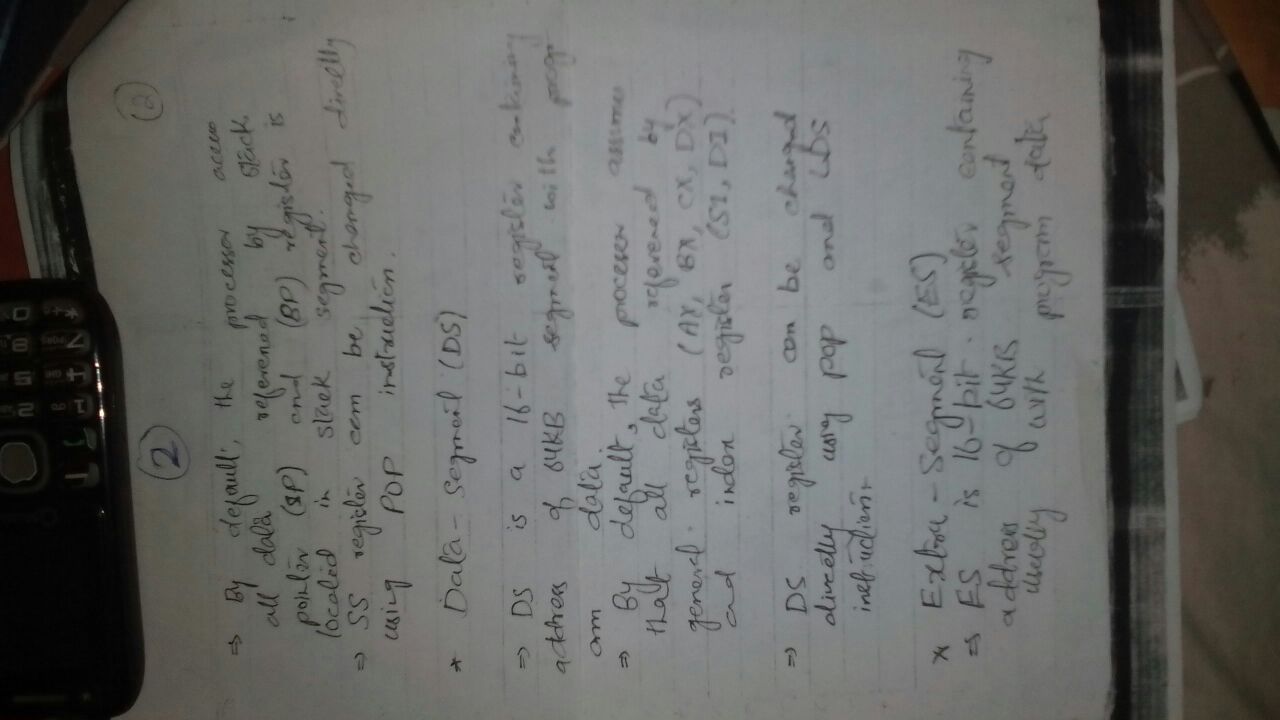 (2)
(2)
⇒ By default, the processor access
all data referened by stack
pointer (SP) and (BP) register is
located in stack segment.
⇒ SS register can be changed directly
using POP instruction.
* Data - Segment (DS)
⇒ DS is a 16-bit register containing
address of 64KB segment with progr
am data.
⇒ By default, the processer assumes
that all data referened by
general registers (AX, BX, CX, DX)
and index register (SI, DI).
⇒ DS register can be changed
directly using pop and LDS
instruction.
* Extra - Segment (ES)
⇒ ES is 16-bit register containing
address of 64KB segment
usually with program data